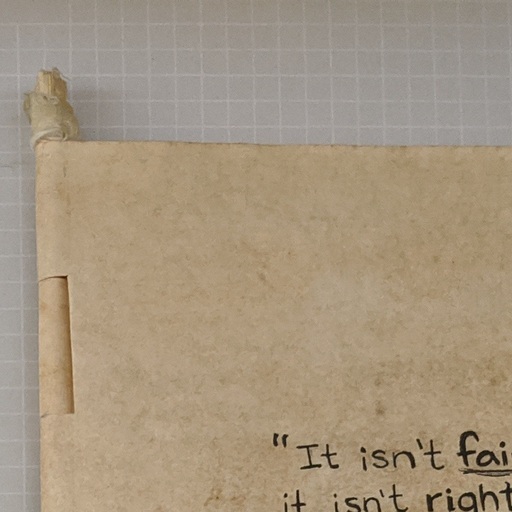 "It isn't fai
it isn't right